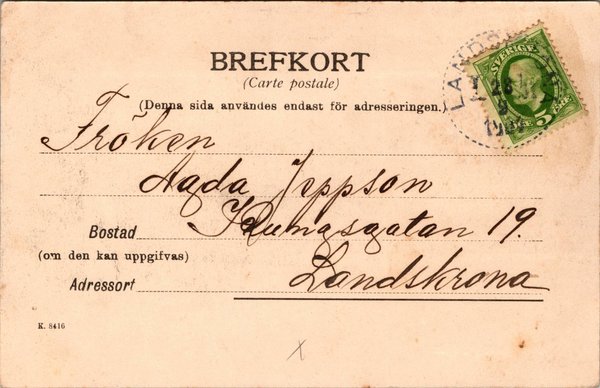 BREFKORT
(Carte postale)
(Denna sida användes endast för adresseringen.)
SVERIGE
5
Fröken
Agda Jeppson
Bostad Kungsgatan 19.
(om den kan uppgifvas)
Adressort Landskrona
K. 8416